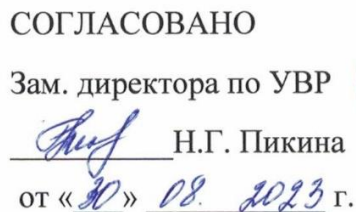 СОГЛАСОВАНО
Зам. директора по УВР
Н.Г. Пикина
от «30» 08. 2023 г.